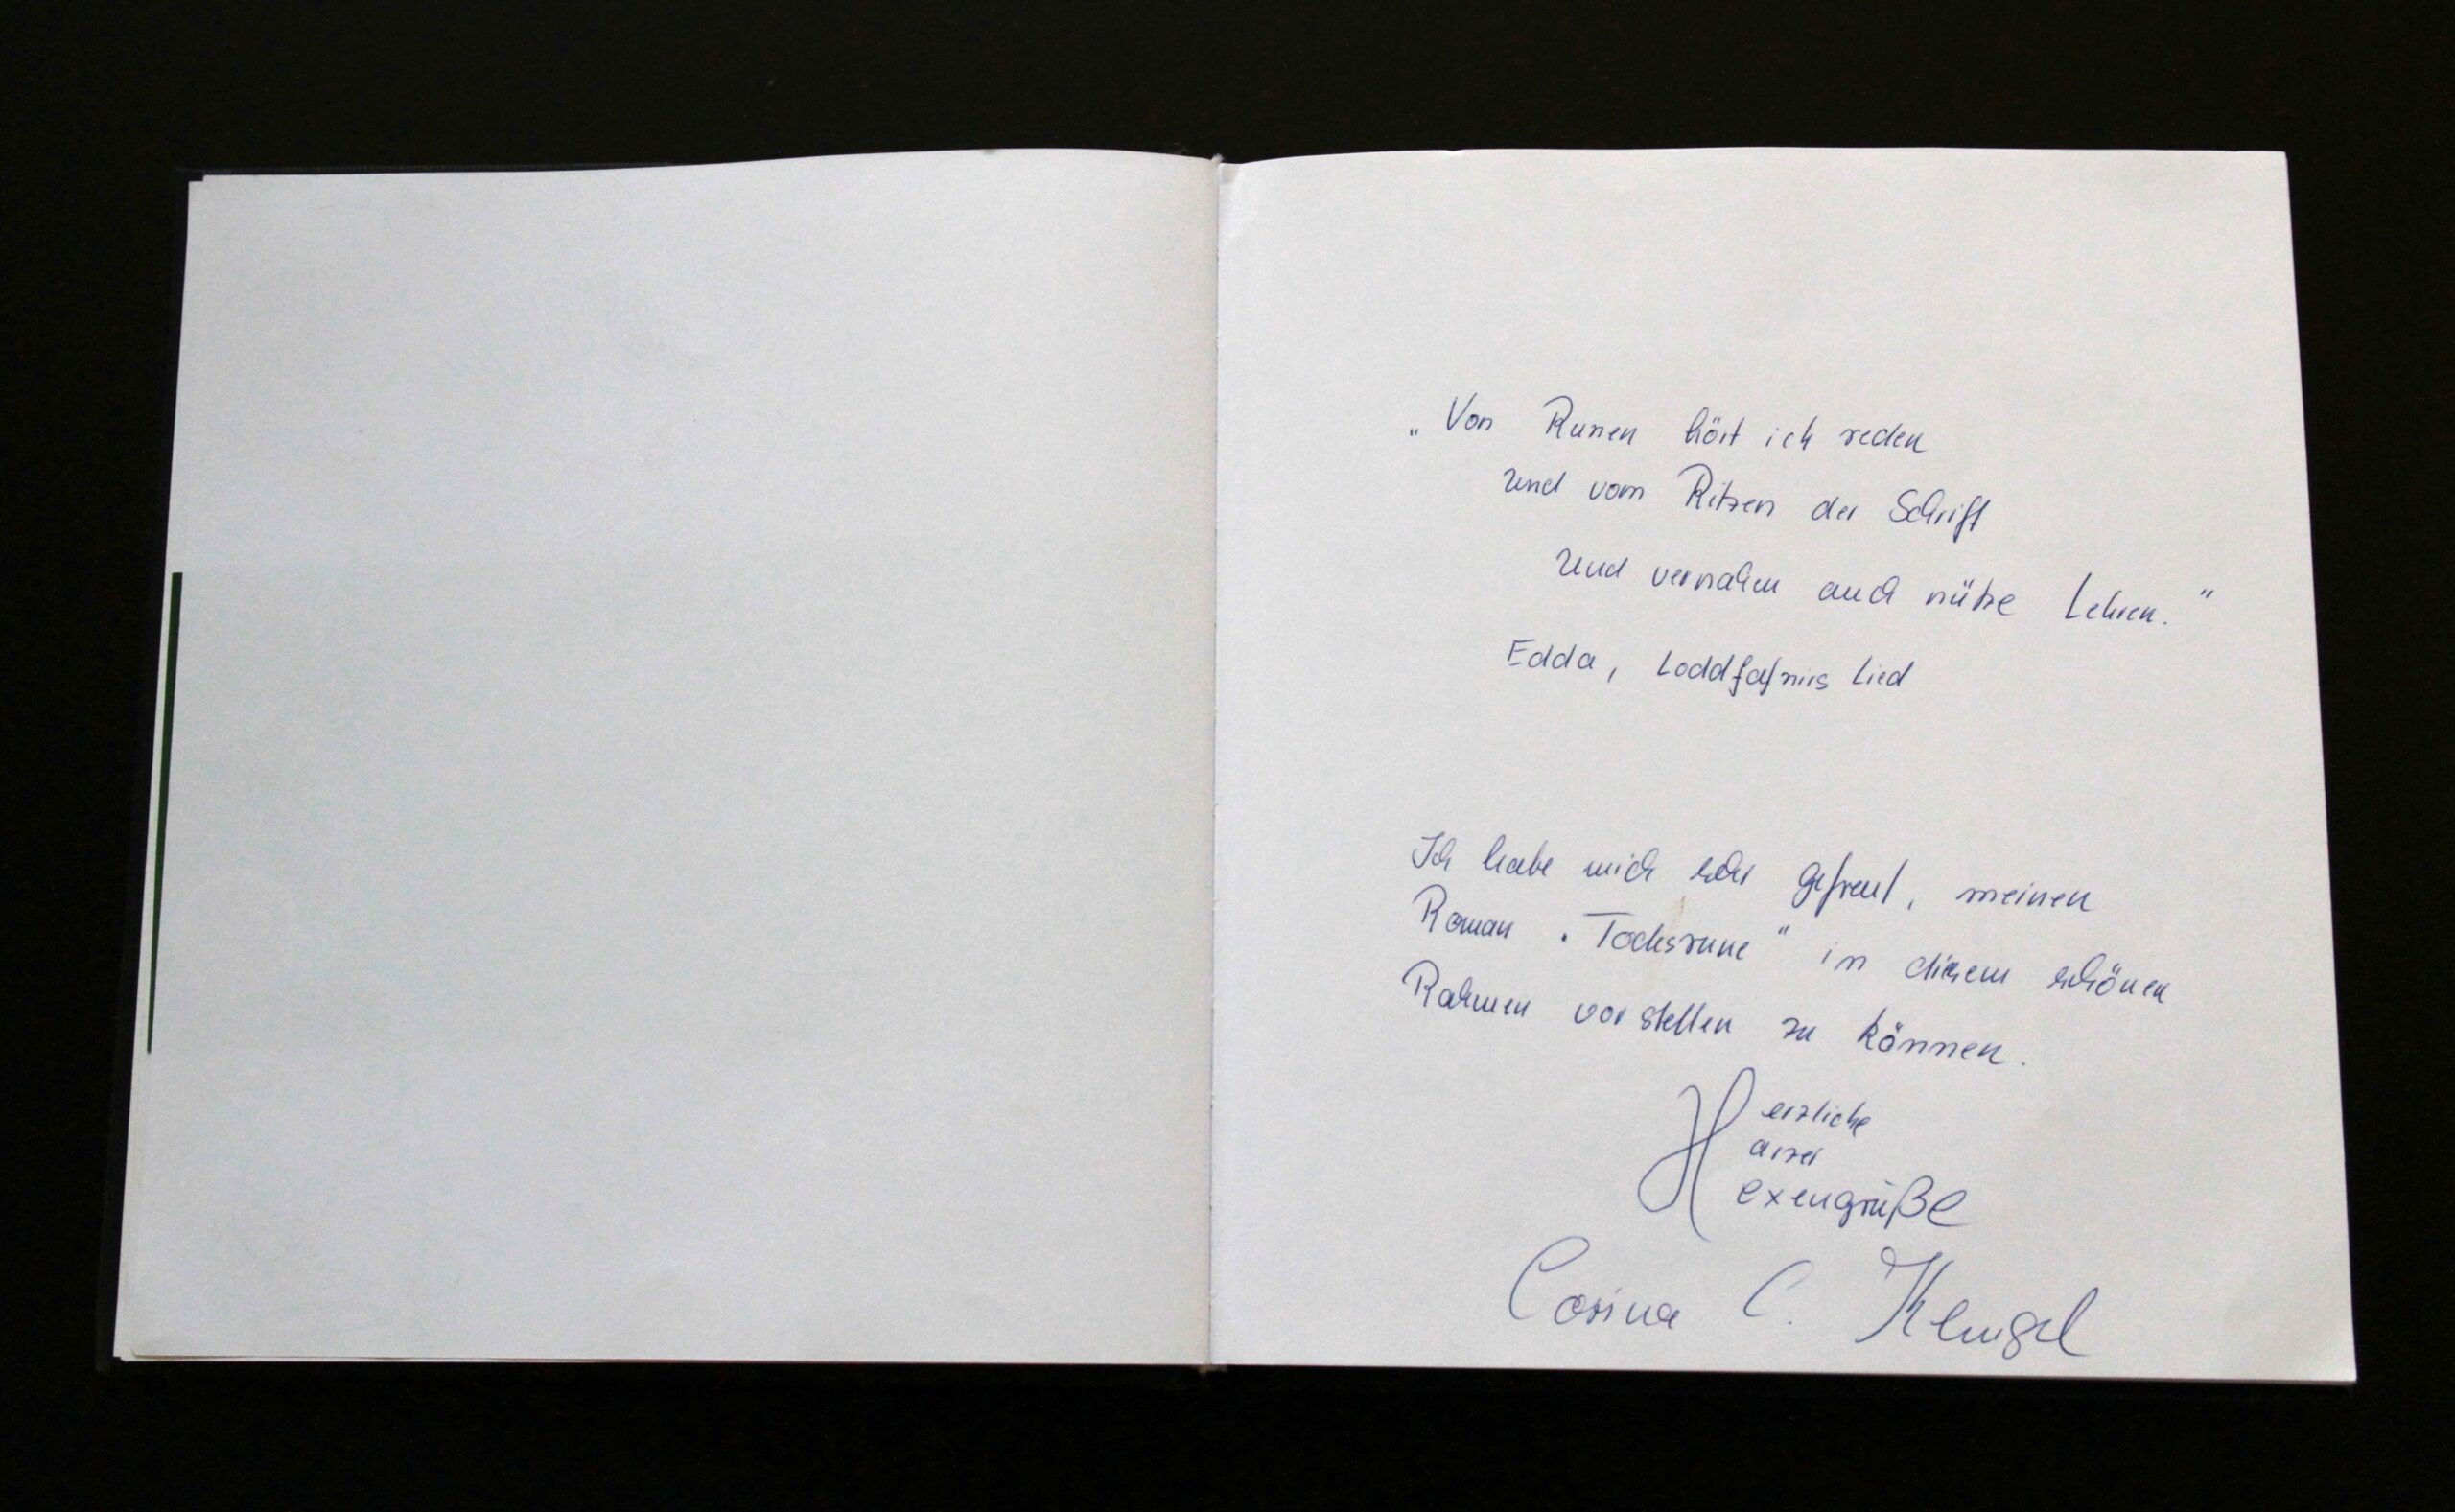 „Von Runen hört ich reden
und vom Ritzen der Schrift
und vernahm auch nütze Lehren."
Edda, Loddfafnirs Lied
Ich habe mich sehr gefreut, meinen
Roman „Todesrune" in diesem schönen
Rahmen vorstellen zu können.
Herzliche
arzer
exengrüße
Corina C. Klengel